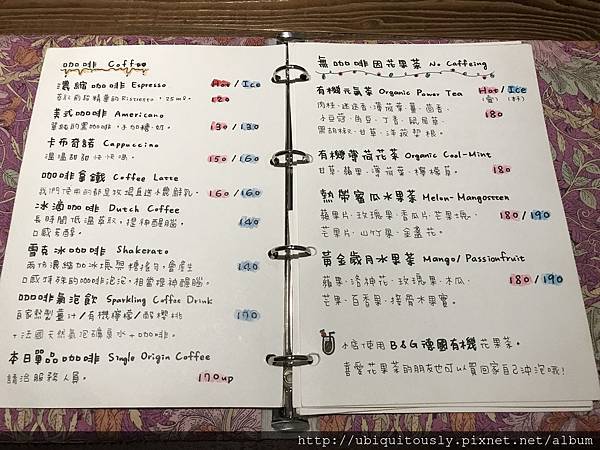 咖啡 Coffee
濃縮咖啡 Espresso Hot / Ice
萃取前段精華的Ristretto，25ml。 120
美式咖啡 Americano
單純的黑咖啡，不加糖、奶。 130 / 130
卡布奇諾 Cappuccino
溫溫甜甜快快喝。 150 / 160
咖啡拿鐵 Coffee Latte
我們使用的都是牧場直送水農鮮乳。 160 / 160
冰滴咖啡 Dutch Coffee
長時間低溫萃取，提神醒腦。 140
口感多醇。
雪克冰咖啡 Shakerato
兩份濃縮加冰塊與糖搖勻，會產生 140
口感特殊的咖啡泡泡，相當提神醒腦。
咖啡氣泡飲 Sparkling Coffee Drink
自家熬製薑汁/有機檸檬/酸櫻桃 170
+法國天然氣泡礦泉水+咖啡。
本日單品咖啡 Single Origin Coffee
請洽服務人員。 170up
無咖啡因花果茶 No Caffeing
有機元氣茶 Organic Power Tea Hot / Ice
肉桂、迷迭香、薄荷葉、薑、茴香、 (壺) (杯)
小豆蔻、角豆、丁香、鼠尾草、 180
黑胡椒、甘草、洋菝契根。
有機薄荷花茶 Organic Cool-Mint
甘草、蘋果、薄荷葉、檸檬草。 180
熱帶蜜瓜水果茶 Melon-Mangosteen
蘋果片、玫瑰果、香瓜片、芒果塊、 180 / 190
芒果片、山竹果、金盞花。
黃金歲月水果茶 Mango/Passionfruit
蘋果、洛神花、玫瑰果、木瓜、 180 / 190
芒果、百香果、接骨木果實。
小店使用B&G德國有機花果茶。
喜愛花果茶的朋友也可以買回家自己沖泡哦!
http://ubiquitously.pixnet.net/album